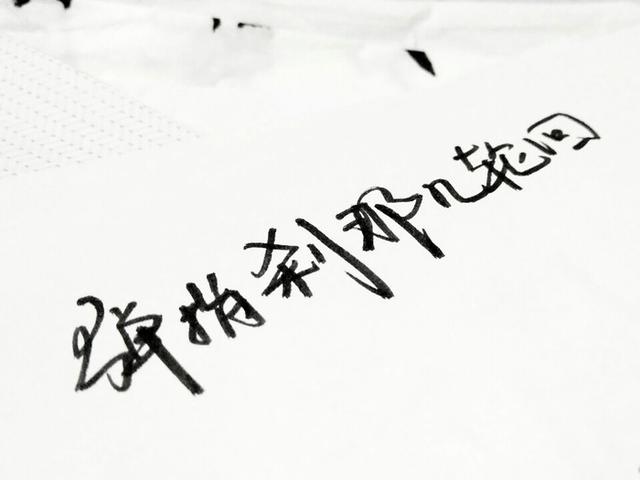 弹指刹那几轮回